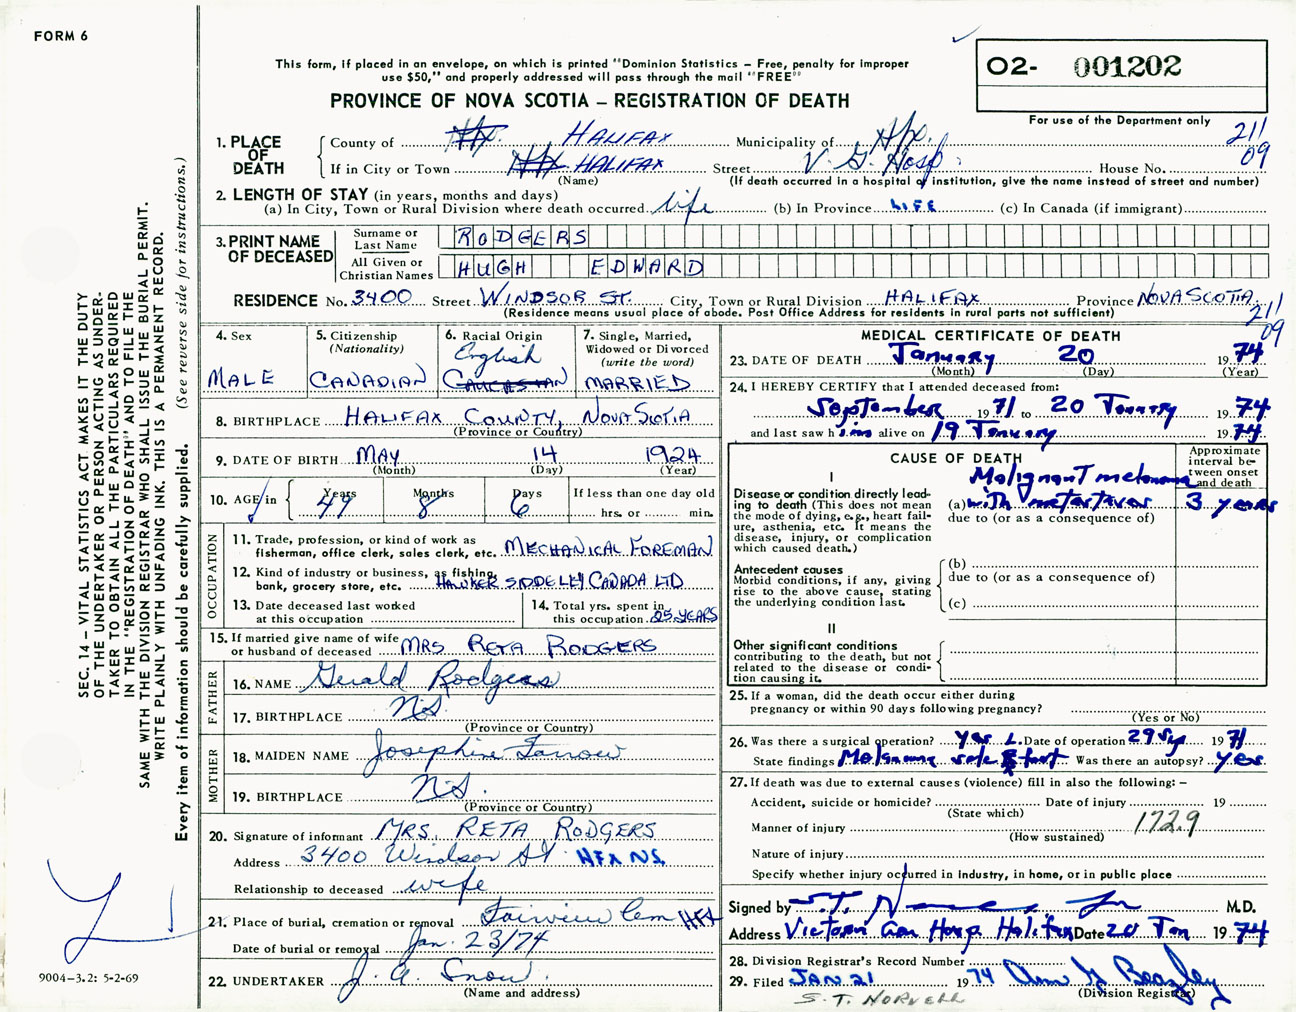 FORM 6
This form, if placed in an envelope, on which is printed "Dominion Statistics – Free, penalty for improper
use $50," and properly addressed will pass through the mail "FREE"
PROVINCE OF NOVA SCOTIA – REGISTRATION OF DEATH
O2- 001202
For use of the Department only
211
09
1. PLACE OF DEATH
County of HALIFAX Municipality of Hfx.
If in City or Town HALIFAX Street V. G. Hosp. House No.
(Name) (If death occurred in a hospital or institution, give the name instead of street and number)
2. LENGTH OF STAY (in years, months and days)
(a) In City, Town or Rural Division where death occurred life (b) In Province LIFE (c) In Canada (if immigrant)
3. PRINT NAME OF DECEASED
Surname or Last Name RODGERS
All Given or Christian Names HUGH EDWARD
RESIDENCE No. 3400 Street WINDSOR ST. City, Town or Rural Division HALIFAX Province NOVA SCOTIA
(Residence means usual place of abode. Post Office Address for residents in rural parts not sufficient)
211
09
4. Sex
MALE
5. Citizenship
(Nationality)
CANADIAN
6. Racial Origin
English
CAUCASIAN
7. Single, Married,
Widowed or Divorced
(write the word)
MARRIED
8. BIRTHPLACE HALIFAX COUNTY, NOVA SCOTIA
(Province or Country)
9. DATE OF BIRTH MAY 14 1924
(Month) (Day) (Year)
10. AGE in Years 49 Months 8 Days 6 If less than one day old
hrs. or min.
OCCUPATION
11. Trade, profession, or kind of work as
fisherman, office clerk, sales clerk, etc. MECHANICAL FOREMAN
12. Kind of industry or business, as fishing,
bank, grocery store, etc. HAWKER SIDDELEY CANADA LTD
13. Date deceased last worked
at this occupation
14. Total yrs. spent in
this occupation 25 YEARS
15. If married give name of wife
or husband of deceased MRS RETA RODGERS
FATHER
16. NAME Gerald Rodgers
17. BIRTHPLACE N.S.
(Province or Country)
MOTHER
18. MAIDEN NAME Josephine Farrow
19. BIRTHPLACE N.S.
(Province or Country)
20. Signature of informant MRS. RETA RODGERS
Address 3400 Windsor St HFX N.S.
Relationship to deceased wife
21. Place of burial, cremation or removal Fairview Cem HFX
Date of burial or removal Jan. 23/74
22. UNDERTAKER J. A. Snow
(Name and address)
MEDICAL CERTIFICATE OF DEATH
23. DATE OF DEATH January 20 1974
(Month) (Day) (Year)
24. I HEREBY CERTIFY that I attended deceased from:
September 1971 to 20 January 1974
and last saw him alive on 19 January 1974
CAUSE OF DEATH
Approximate interval between onset and death
I
Disease or condition directly leading to death (This does not mean
the mode of dying, e.g., heart failure, asthenia, etc. It means the
disease, injury, or complication
which caused death.)
Malignant melanoma
(a) with metastases 3 years
due to (or as a consequence of)
Antecedent causes
Morbid conditions, if any, giving
rise to the above cause, stating
the underlying condition last.
(b)
due to (or as a consequence of)
(c)
II
Other significant conditions
contributing to the death, but not
related to the disease or condition causing it.
25. If a woman, did the death occur either during
pregnancy or within 90 days following pregnancy?
(Yes or No)
26. Was there a surgical operation? Yes Date of operation 29 Sep 1971
State findings Melanoma sole foot Was there an autopsy? Yes
27. If death was due to external causes (violence) fill in also the following: –
Accident, suicide or homicide? Date of injury 19
(State which)
Manner of injury 172.9
(How sustained)
Nature of injury
Specify whether injury occurred in industry, in home, or in public place
Signed by S.T. M.D.
Address Victoria Gen Hosp Halifax Date 20 Jan 1974
28. Division Registrar's Record Number
29. Filed JAN 21 1974 Ann G Beazley
(Division Registrar)
S. T. NORVELL
SEC. 14 – VITAL STATISTICS ACT MAKES IT THE DUTY
OF THE UNDERTAKER OR PERSON ACTING AS UNDER-
TAKER TO OBTAIN ALL THE PARTICULARS REQUIRED
IN THE "REGISTRATION OF DEATH" AND TO FILE THE
SAME WITH THE DIVISION REGISTRAR WHO SHALL ISSUE THE BURIAL PERMIT.
WRITE PLAINLY WITH UNFADING INK. THIS IS A PERMANENT RECORD.
Every item of information should be carefully supplied. (See reverse side for instructions.)
9004-3.2: 5-2-69